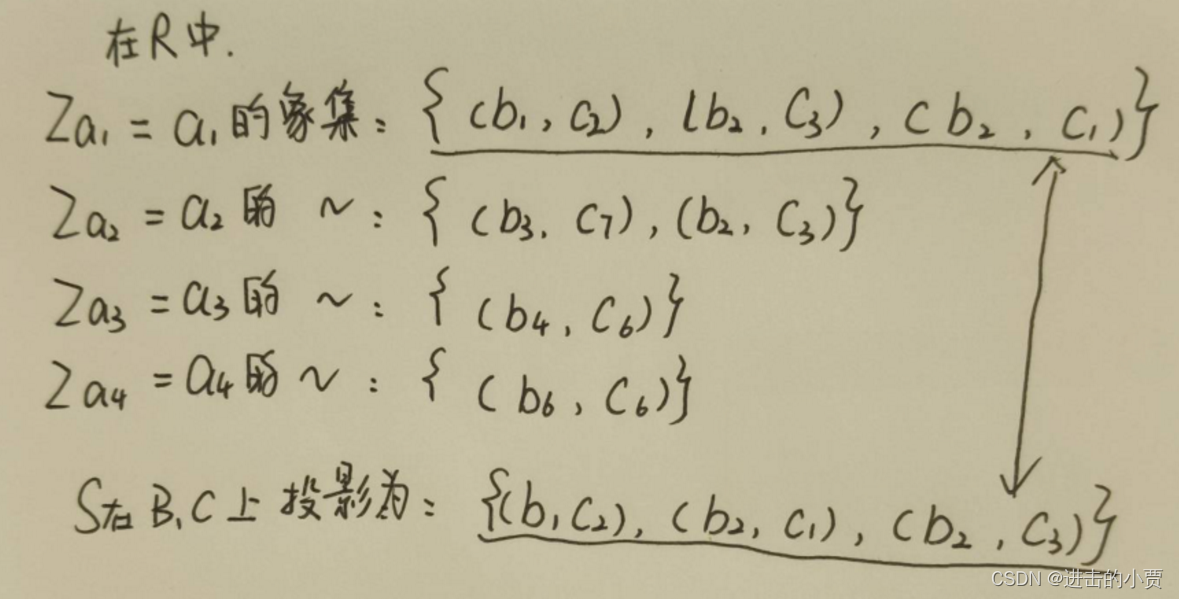 在R中.
Za₁ = a₁的象集: {(b₁, C₂), (b₂, C₃), (b₂, C₁)}
Za₂ = a₂的 ~: {(b₃, C₇), (b₂, C₃)}
Za₃ = a₃的 ~: {(b₄, C₆)}
Za₄ = a₄的 ~: {(b₆, C₆)}
S在B,C上投影为: {(b₁C₂), (b₂, C₁), (b₂, C₃)}
CSDN @进击的小贾